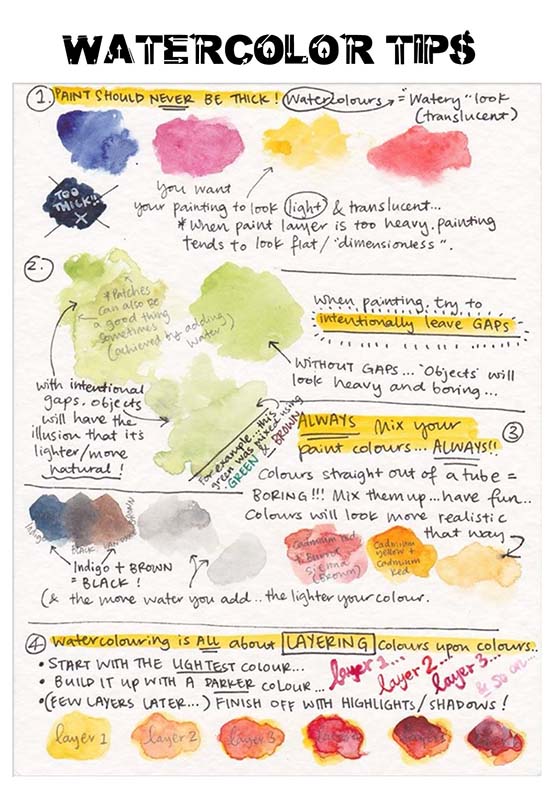 WATERCOLOR TIPS
1. PAINT SHOULD NEVER BE THICK! Watercolours → = "Watery" look
(translucent)
TOO
THICK!!
X
You want
your painting to look light & translucent...
* When paint layer is too heavy, painting
tends to look flat / "dimensionless".
2.
* Patches
can also be
a good thing
sometimes
(achieved by adding
water)
When painting, try to
intentionally leave GAPS
WITHOUT GAPS... 'Objects' will
look heavy and boring...
with intentional
gaps, objects
will have the
illusion that it's
lighter/more
natural!
For example... this
green was mixed using
GREEN & BROWN
ALWAYS Mix your 3
paint colours... ALWAYS!!
Colours straight out of a tube =
BORING!!! Mix them up...have fun..
Colours will look more realistic
that way
Indigo
BLACK
BROWN
Indigo + BROWN
= BLACK!
(& the more water you add.. the lighter your colour.
Cadmium red
+ Burnt
Sienna
(Brown)
Cadmium
yellow +
Cadmium
Red
4 Watercolouring is ALL about LAYERING colours upon colours..
• START WITH THE LIGHTEST COLOUR...
• BUILD IT UP WITH A DARKER COLOUR...
• (FEW LAYERS LATER...) FINISH OFF WITH HIGHLIGHTS/SHADOWS!
layer 1...
layer 2...
layer 3...
& so on...
layer 1
layer 2
layer 3